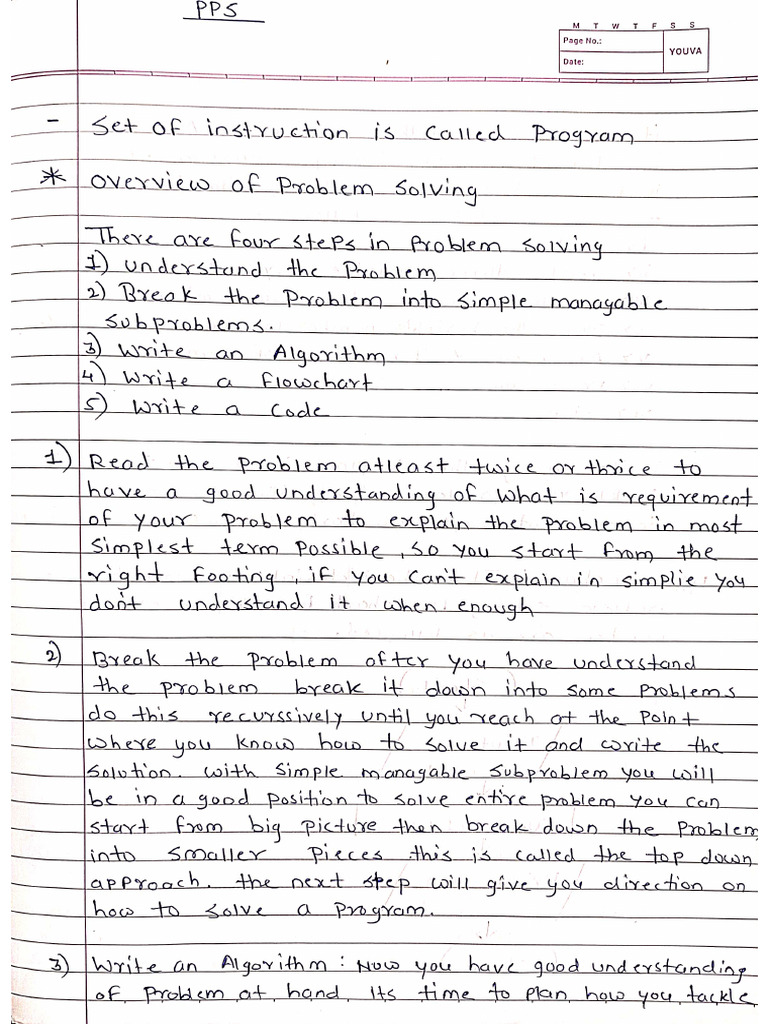 PPS
M T W T F S S
Page No.:
YOUVA
Date:
- Set of instruction is called Program
* Overview of Problem Solving
There are four steps in Problem solving
1) understand the Problem
2) Break the Problem into simple managable
subproblems.
3) Write an Algorithm
4) Write a flowchart
5) Write a Code
1) Read the problem atleast twice or thrice to
have a good understanding of what is requirement
of your problem to explain the problem in most
simplest term possible, so you start from the
right footing, if you can't explain in simplie you
don't understand it when enough
2) Break the problem after you have understand
the problem break it down into some problems
do this recurssively until you reach at the point
where you know how to solve it and write the
solution. With simple managable subproblem you will
be in a good position to solve entire problem you can
start from big picture then break down the problem
into smaller pieces this is called the top down
approach. the next step will give you direction on
how to solve a program.
3) Write an Algorithm: Now you have good understanding
of Problem at hand. Its time to plan how you tackle